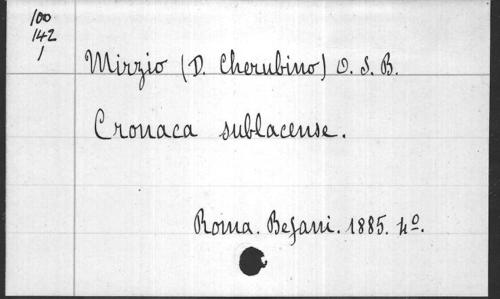 100
142
1
Mirzio (D. Cherubino) O. S. B.
Cronaca sublacense.
Roma. Befani. 1885. 4º.